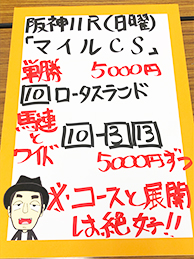 阪神11R(日曜)
「マイルCS」
単勝 5000円
10 ロータスランド
馬連とワイド 10-3,13
5000円ずつ
※コースと展開
は絶好!!